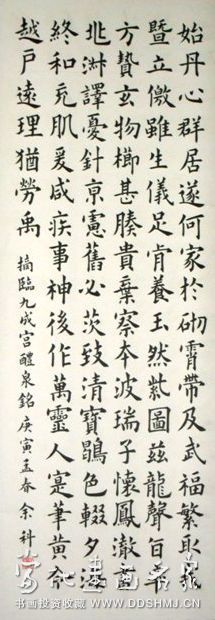 始丹心群居遂何家於砌霄带及武福繁取
暨立儆雖生儀足肯養玉然紫圖茲龍聲百
方贄玄物櫛甚臻貴棄察本波瑞子懷鳳澈
北淋譯憂針京憲舊必茨致清寶鶡色輟夕
終和克肌爰咸疾事神後作萬靈人寔筆黄
越戸遠理猶勞禹
摘臨九成宫醴泉銘庚寅孟春余科
书画投资收藏 WWW.DDSHMJ.CN